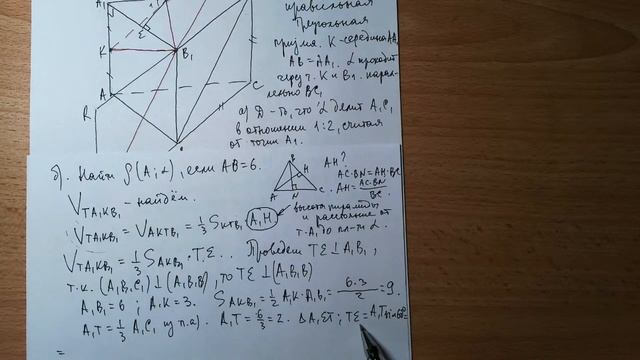 правильная
треугольная
призма. К-середина АА₁
АВ=АА₁. α проходит
через т. К и В₁ парал-
лельно ВС₁
а) Д-ть, что α делит А₁С₁
в отношении 1:2, считая
от точки А₁.
A₁
K
E
B₁
A
C
R
б). Найти ρ(А;α), если АВ=6.
V_TA₁KB₁ - найдём.
B
H
A N C
AH?
AC·BN=AH·BC
AH=AC·BN/BC
V_TA₁KB₁=V_A₁KTB₁=1/3 S_KTB₁ (A₁H)
высота пирамиды
и расстояние от
т. А₁ до пл-ти α.
V_TA₁KB₁=1/3 S_A₁KB₁·TE.. Проведем TE⊥A₁B₁,
т.к. (A₁B₁C₁)⊥(A₁B₁B), то TE⊥(A₁B₁B)
A₁B₁=6; A₁K=3. S_A₁KB₁=1/2 A₁K·A₁B₁=6·3/2=9.
A₁T=1/3 A₁C₁ из п.а). A₁T=6/3=2. Δ A₁ET; TE=A₁T sin60°=
=